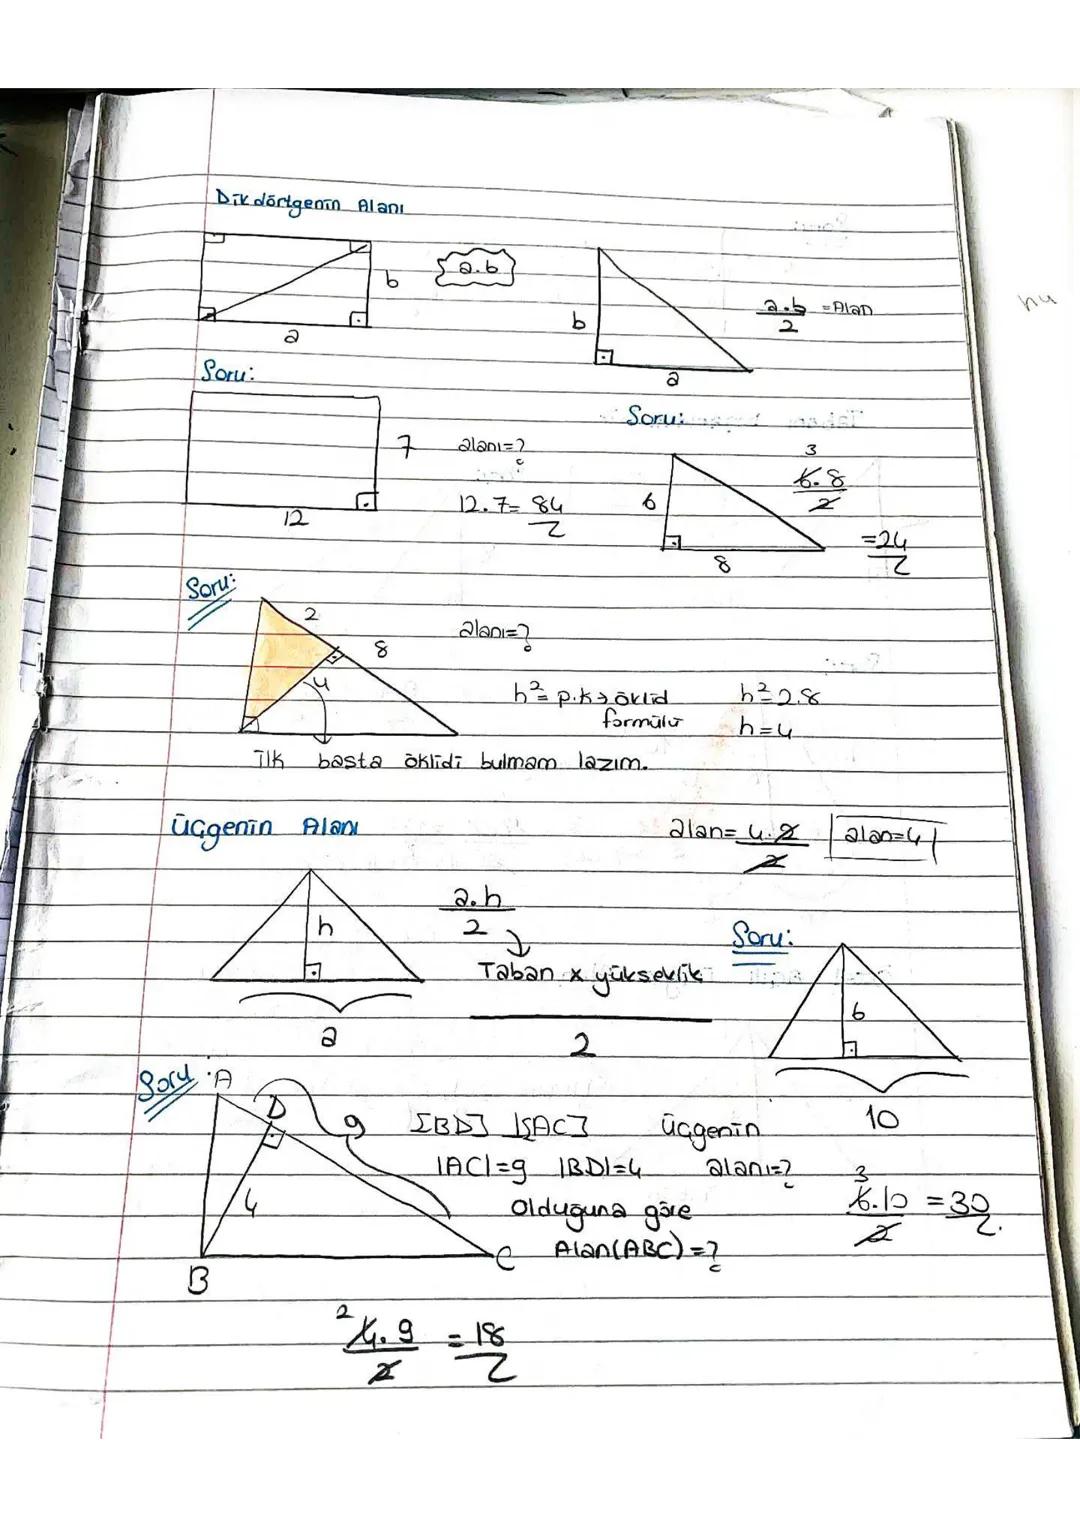 Dikdörtgenin Alanı
a.b
b
a
b
a
a.b = Alan
2
Soru:
7
12
alanı=?
12.7= 84
Soru:
6
8
3
6.8
2
=24
Soru:
2
8
4
alanı=?
h²= p.k → öklid
formülü
h²=2.8
h=4
ilk basta öklidi bulmam lazım.
üçgenin Alanı
alan= 4.2
2
alan=4
h
a
a.h
2
Taban x yükseklik
2
Soru:
6
10
üçgenin
alanı=?
3
6.10 =30
2
Soru
A
D
9
4
B
C
[BD] ⊥ [AC]
|AC|=9 |BD|=4
Olduğuna göre
Alan(ABC)=?
2
4.9 = 18
2